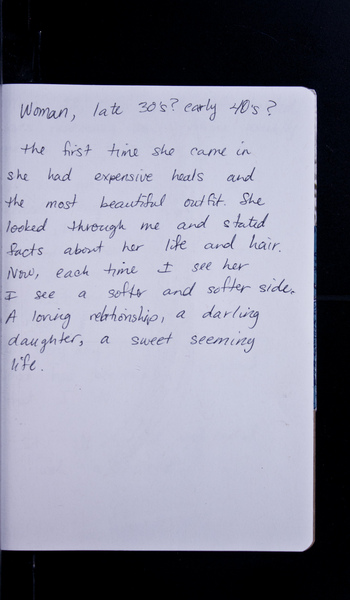 Woman, late 30's? early 40's?
the first time she came in
she had expensive heals and
the most beautiful outfit. She
looked through me and stated
facts about her life and hair.
Now, each time I see her
I see a softer and softer side.
A loving relationship, a darling
daughter, a sweet seeming
life.